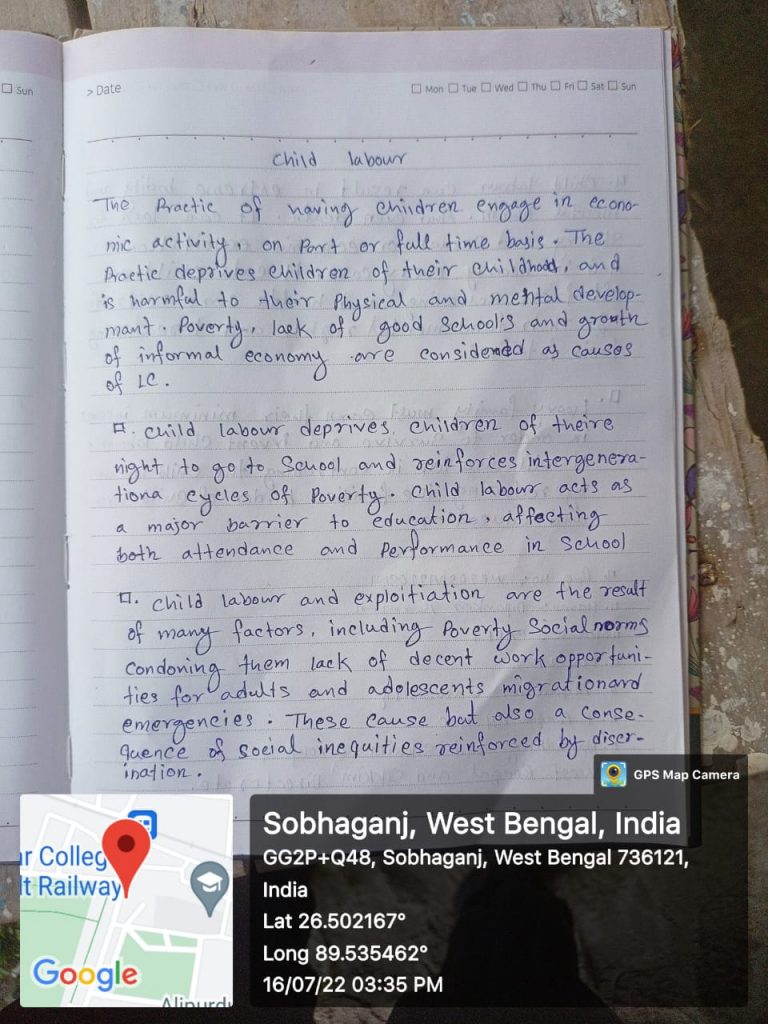 Sun
> Date
Mon Tue Wed Thu Fri Sat Sun
Child labour
The Practic of having children engage in econo-
mic activity, on Part or full time basis. The
Practic deprives children of their childhood, and
is harmful to their Physical and mental develop-
mant. Poverty, lack of good School's and growth
of informal economy are considered as causes
of LC.
child labour deprives children of theire
right to go to School and reinforces intergenera-
tiona cycles of Poverty. Child labour acts as
a major barrier to education, affecting
both attendance and Performance in School
child labour and exploitiation are the result
of many factors, including Poverty Social norms
Condoning them lack of decent work opportuni-
ties for adults and adolescents migrationard
emergencies. These cause but also a conse-
quence of social inequities reinforced by discr-
ination.
GPS Map Camera
Sobhaganj, West Bengal, India
GG2P+Q48, Sobhaganj, West Bengal 736121,
India
Lat 26.502167°
Long 89.535462°
16/07/22 03:35 PM
ar Colleg
lt Railway
Google
Alipurdu